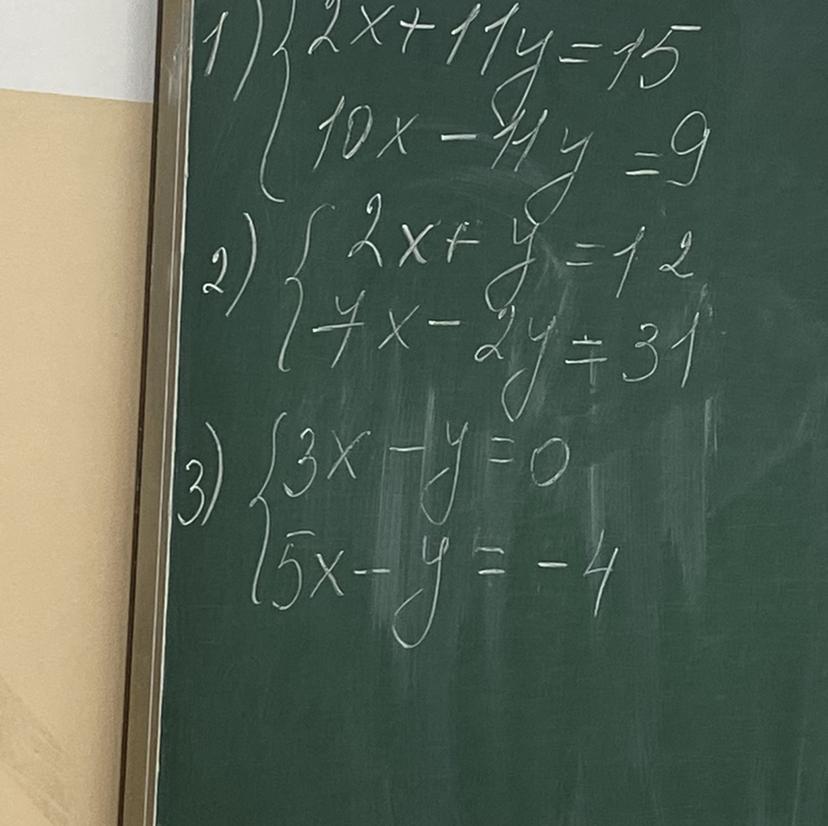 1) { 2x + 11y = 15
10x - 11y = 9
2) { 2x + y = 12
7x - 2y = 31
3) { 3x - y = 0
5x - y = -4